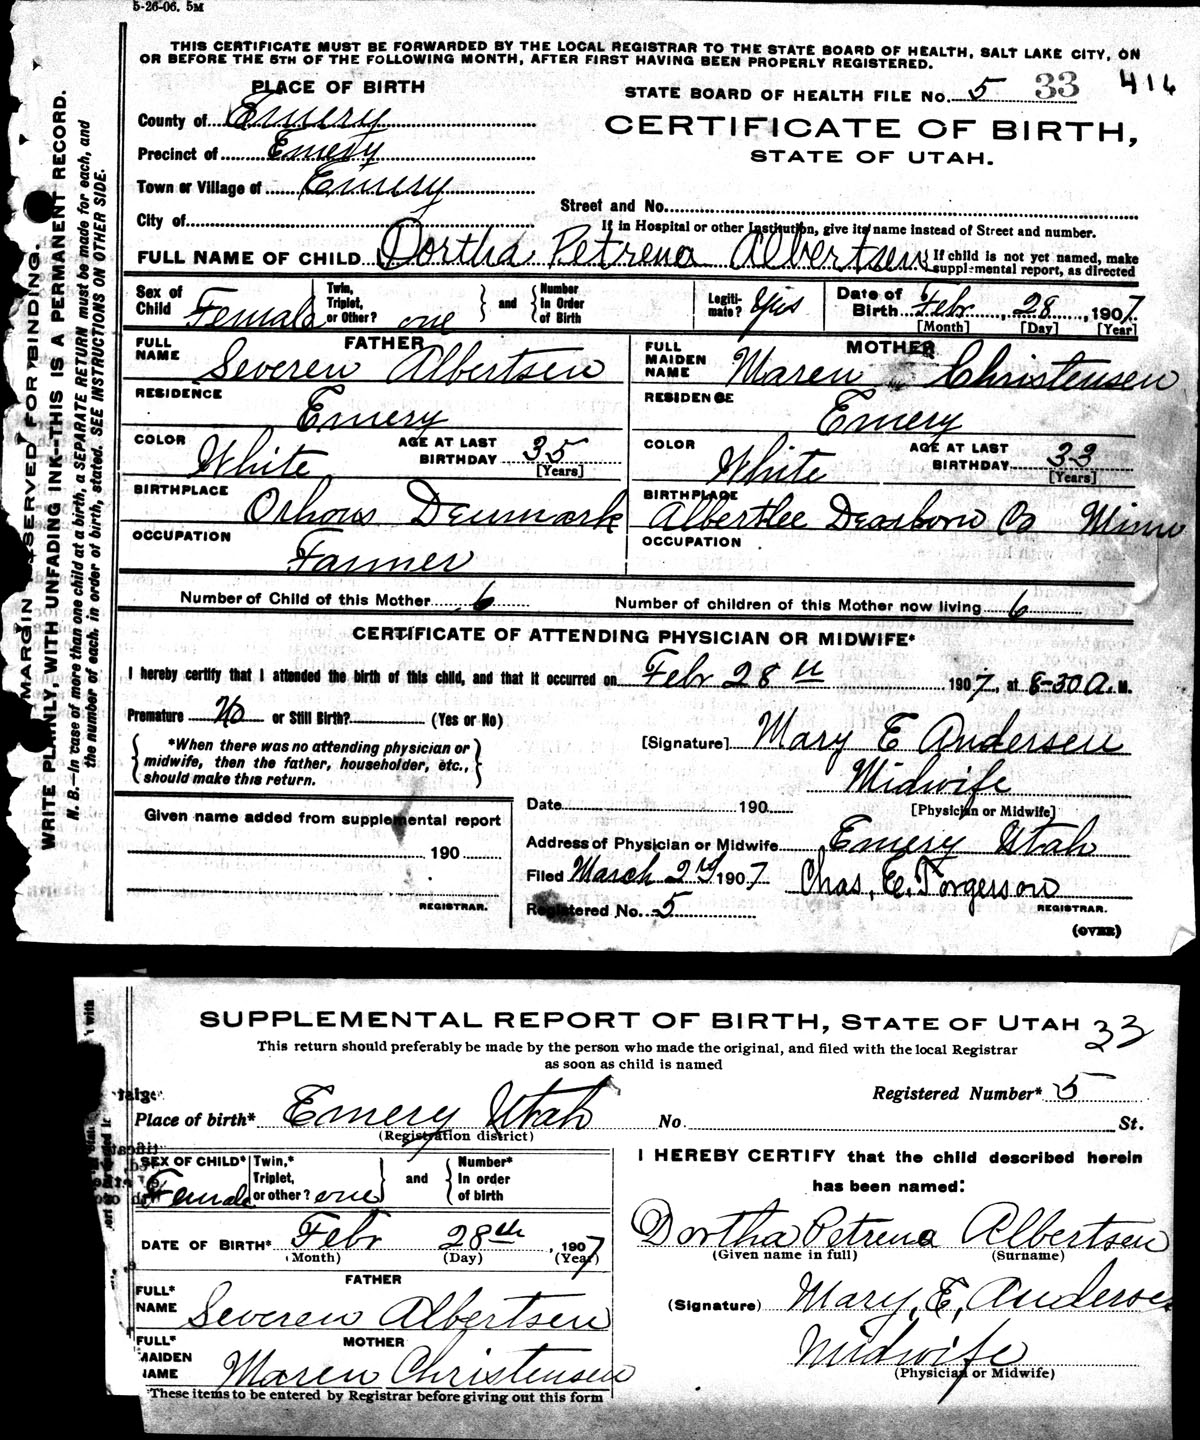 5-26-06. 5M
THIS CERTIFICATE MUST BE FORWARDED BY THE LOCAL REGISTRAR TO THE STATE BOARD OF HEALTH, SALT LAKE CITY, ON
OR BEFORE THE 5TH OF THE FOLLOWING MONTH, AFTER FIRST HAVING BEEN PROPERLY REGISTERED.
PLACE OF BIRTH
STATE BOARD OF HEALTH FILE No. 5 33 416
County of Emery
CERTIFICATE OF BIRTH,
Precinct of Emery
STATE OF UTAH.
Town or Village of Emery
Street and No.
City of
If in Hospital or other Institution, give its name instead of Street and number.
FULL NAME OF CHILD Dortha Petrena Albertsen
If child is not yet named, make supplemental report, as directed
Sex of Child Female
Twin, Triplet, or Other? one
and
Number In Order of Birth
Legitimate? Yes
Date of Birth Feb 28, 1907
[Month] [Day] [Year]
FATHER
FULL NAME Severen Albertsen
MOTHER
FULL MAIDEN NAME Maren Christensen
RESIDENCE Emery
RESIDENCE Emery
COLOR White AGE AT LAST BIRTHDAY 35 [Years]
COLOR White AGE AT LAST BIRTHDAY 33 [Years]
BIRTHPLACE Orhous Denmark
BIRTHPLACE Albertlee Dearborn Co Minn
OCCUPATION Farmer
OCCUPATION
Number of Child of this Mother 6
Number of children of this Mother now living 6
CERTIFICATE OF ATTENDING PHYSICIAN OR MIDWIFE*
I hereby certify that I attended the birth of this child, and that it occurred on Febr 28th 1907, at 8-30 A. M.
Premature No or Still Birth? (Yes or No)
*When there was no attending physician or
midwife, then the father, householder, etc.,
should make this return.
[Signature] Mary E Andersen
Midwife
[Physician or Midwife]
Date 190
Given name added from supplemental report
190
REGISTRAR.
Address of Physician or Midwife Emery Utah
Filed March 2nd 1907 Chas. E. Torgerson
REGISTRAR.
Registered No. 5
(OVER)
MARGIN RESERVED FOR BINDING.
WRITE PLAINLY, WITH UNFADING INK--THIS IS A PERMANENT RECORD.
N. B.—In case of more than one child at a birth, a SEPARATE RETURN must be made for each, and
the number of each, in order of birth, stated. SEE INSTRUCTIONS ON OTHER SIDE.
SUPPLEMENTAL REPORT OF BIRTH, STATE OF UTAH 33
This return should preferably be made by the person who made the original, and filed with the local Registrar
as soon as child is named
Registered Number* 5
Place of birth* Emery Utah No. St.
(Registration district)
SEX OF CHILD* Female
Twin,* Triplet, or other? one
and
Number* In order of birth
I HEREBY CERTIFY that the child described herein
has been named:
DATE OF BIRTH* Febr 28th, 1907
(Month) (Day) (Year)
Dortha Petrena Albertsen
(Given name in full) (Surname)
FATHER
FULL* NAME Severen Albertsen
(Signature) Mary, E, Anderse
MOTHER
FULL* MAIDEN NAME Maren Christensen
Midwife
(Physician or Midwife)
These items to be entered by Registrar before giving out this form